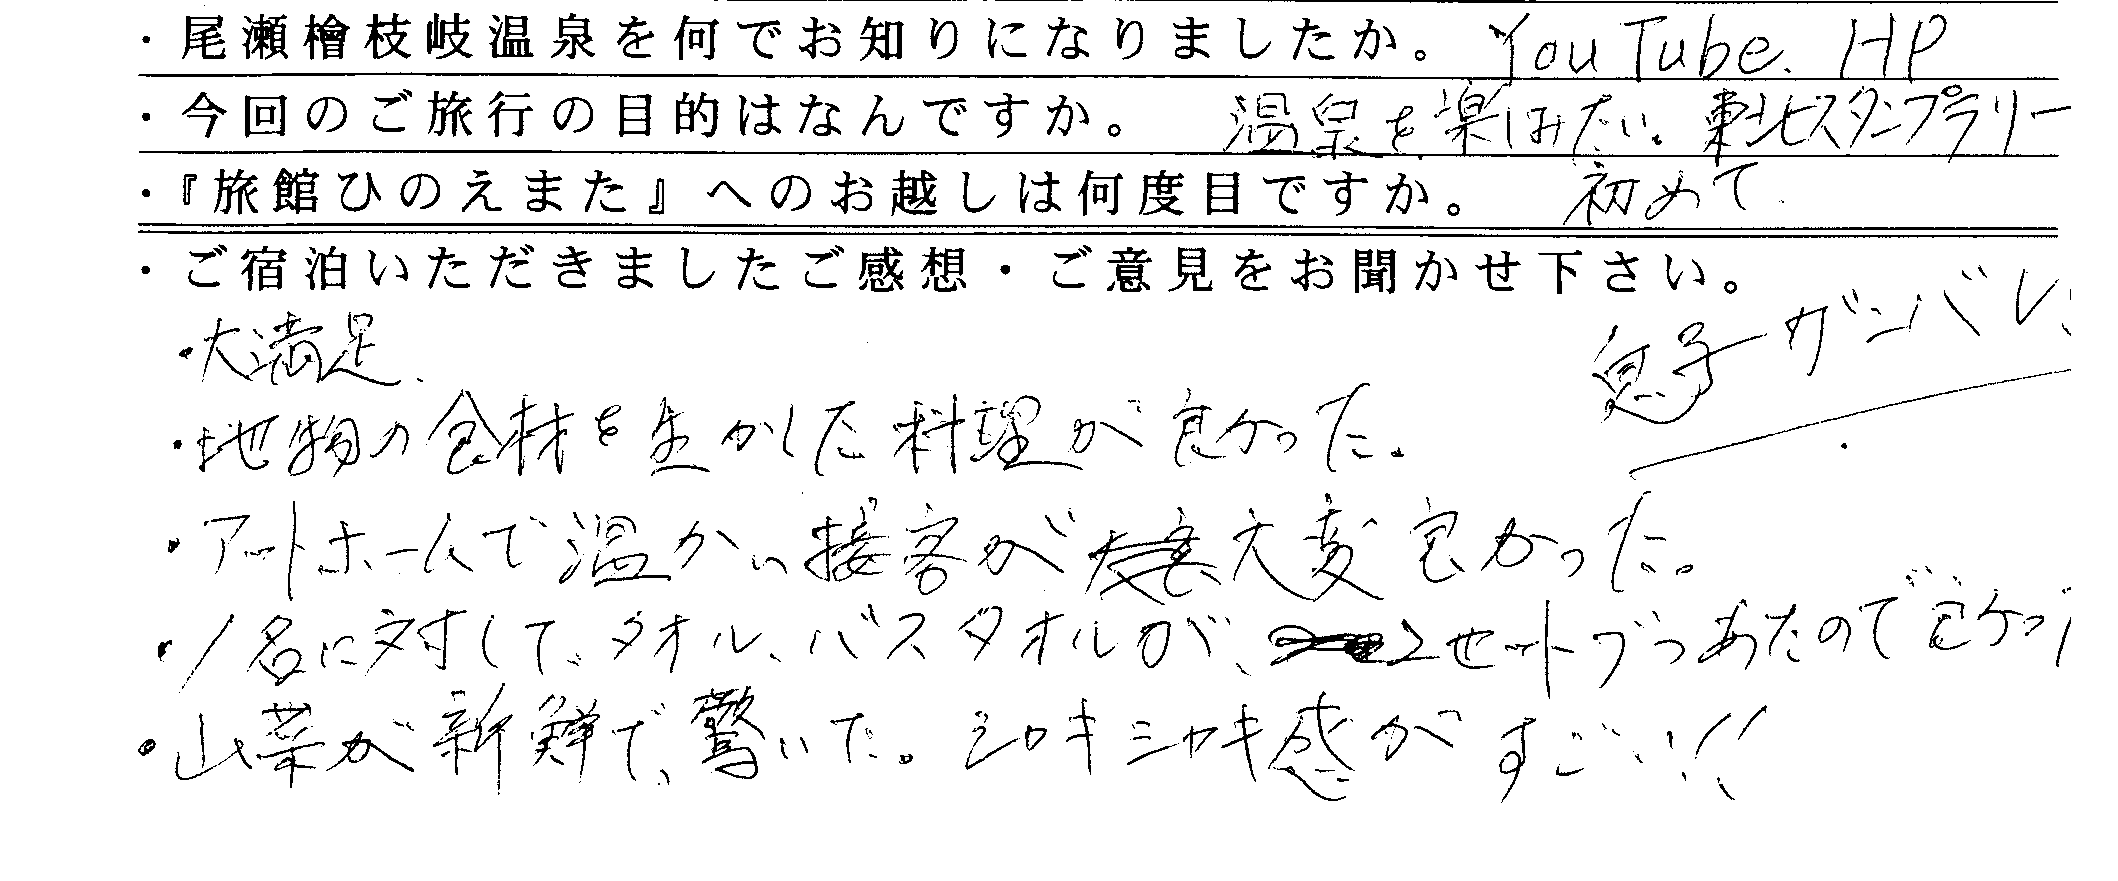 ・尾瀬檜枝岐温泉を何でお知りになりましたか。 YouTube. HP
・今回のご旅行の目的はなんですか。 温泉を楽しみたい。東北スタンプラリー
・『旅館ひのえまた』へのお越しは何度目ですか。 初めて
・ご宿泊いただきましたご感想・ご意見をお聞かせ下さい。
・大満足.
息子ガンバレ
・地物の食材を生かした料理が良かった。
・アットホームで温かい接客が大変良かった。
・1名に対して、タオル、バスタオルが、2セットづつあたので良かっ
・山菜が新鮮で、驚いた。シャキシャキ感がすごい!!